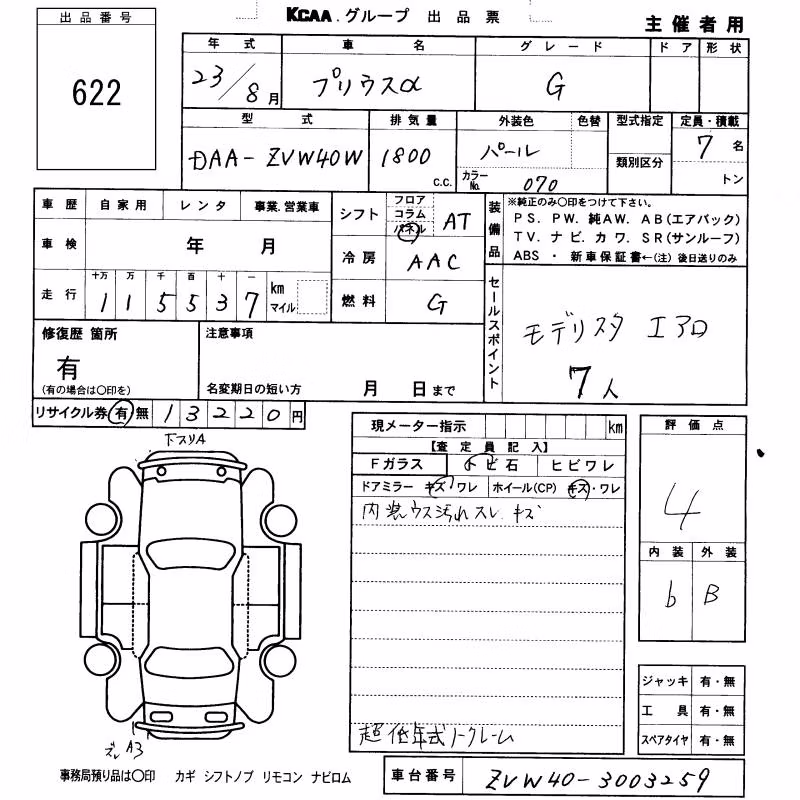 出品番号
622
KCAA グループ 出品票
主催者用
年式 車名 グレード ドア 形状
23/8月 プリウスα G
型式 排気量 外装色 色替 型式指定 定員・積載
DAA-ZVW40W 1800 C.C. パール 類別区分 7名
カラーNo. 070 トン
車歴 自家用 レンタ 事業.営業車
車検 年 月
走行 十万 万 千 百 十 一
115537 km マイル
シフト フロア コラム パネル AT
冷房 AAC
燃料 G
装備品
※純正のみ〇印をつけて下さい。
PS. PW. 純AW. AB(エアバック)
TV. ナビ. カワ. SR(サンルーフ)
ABS ・ 新車保証書←(注)後日送りのみ
セールスポイント
モデリスタ エアロ
7人
修復歴 箇所
有
(有の場合は〇印を)
注意事項
名変期日の短い方 月 日まで
リサイクル券 有 無 13220円
下スリA
ズレ A3
現メーター指示 km
【査定員記入】
Fガラス トビ石 ヒビワレ
ドアミラー キズ/ワレ ホイール(CP) キズ・ワレ
内装ウス汚れ スレ. キズ
超低年式ノークレーム
評価点
4
内装 外装
b B
ジャッキ 有・無
工具 有・無
スペアタイヤ 有・無
事務局預り品は〇印 カギ シフトノブ リモコン ナビロム
車台番号 ZVW40-3003259